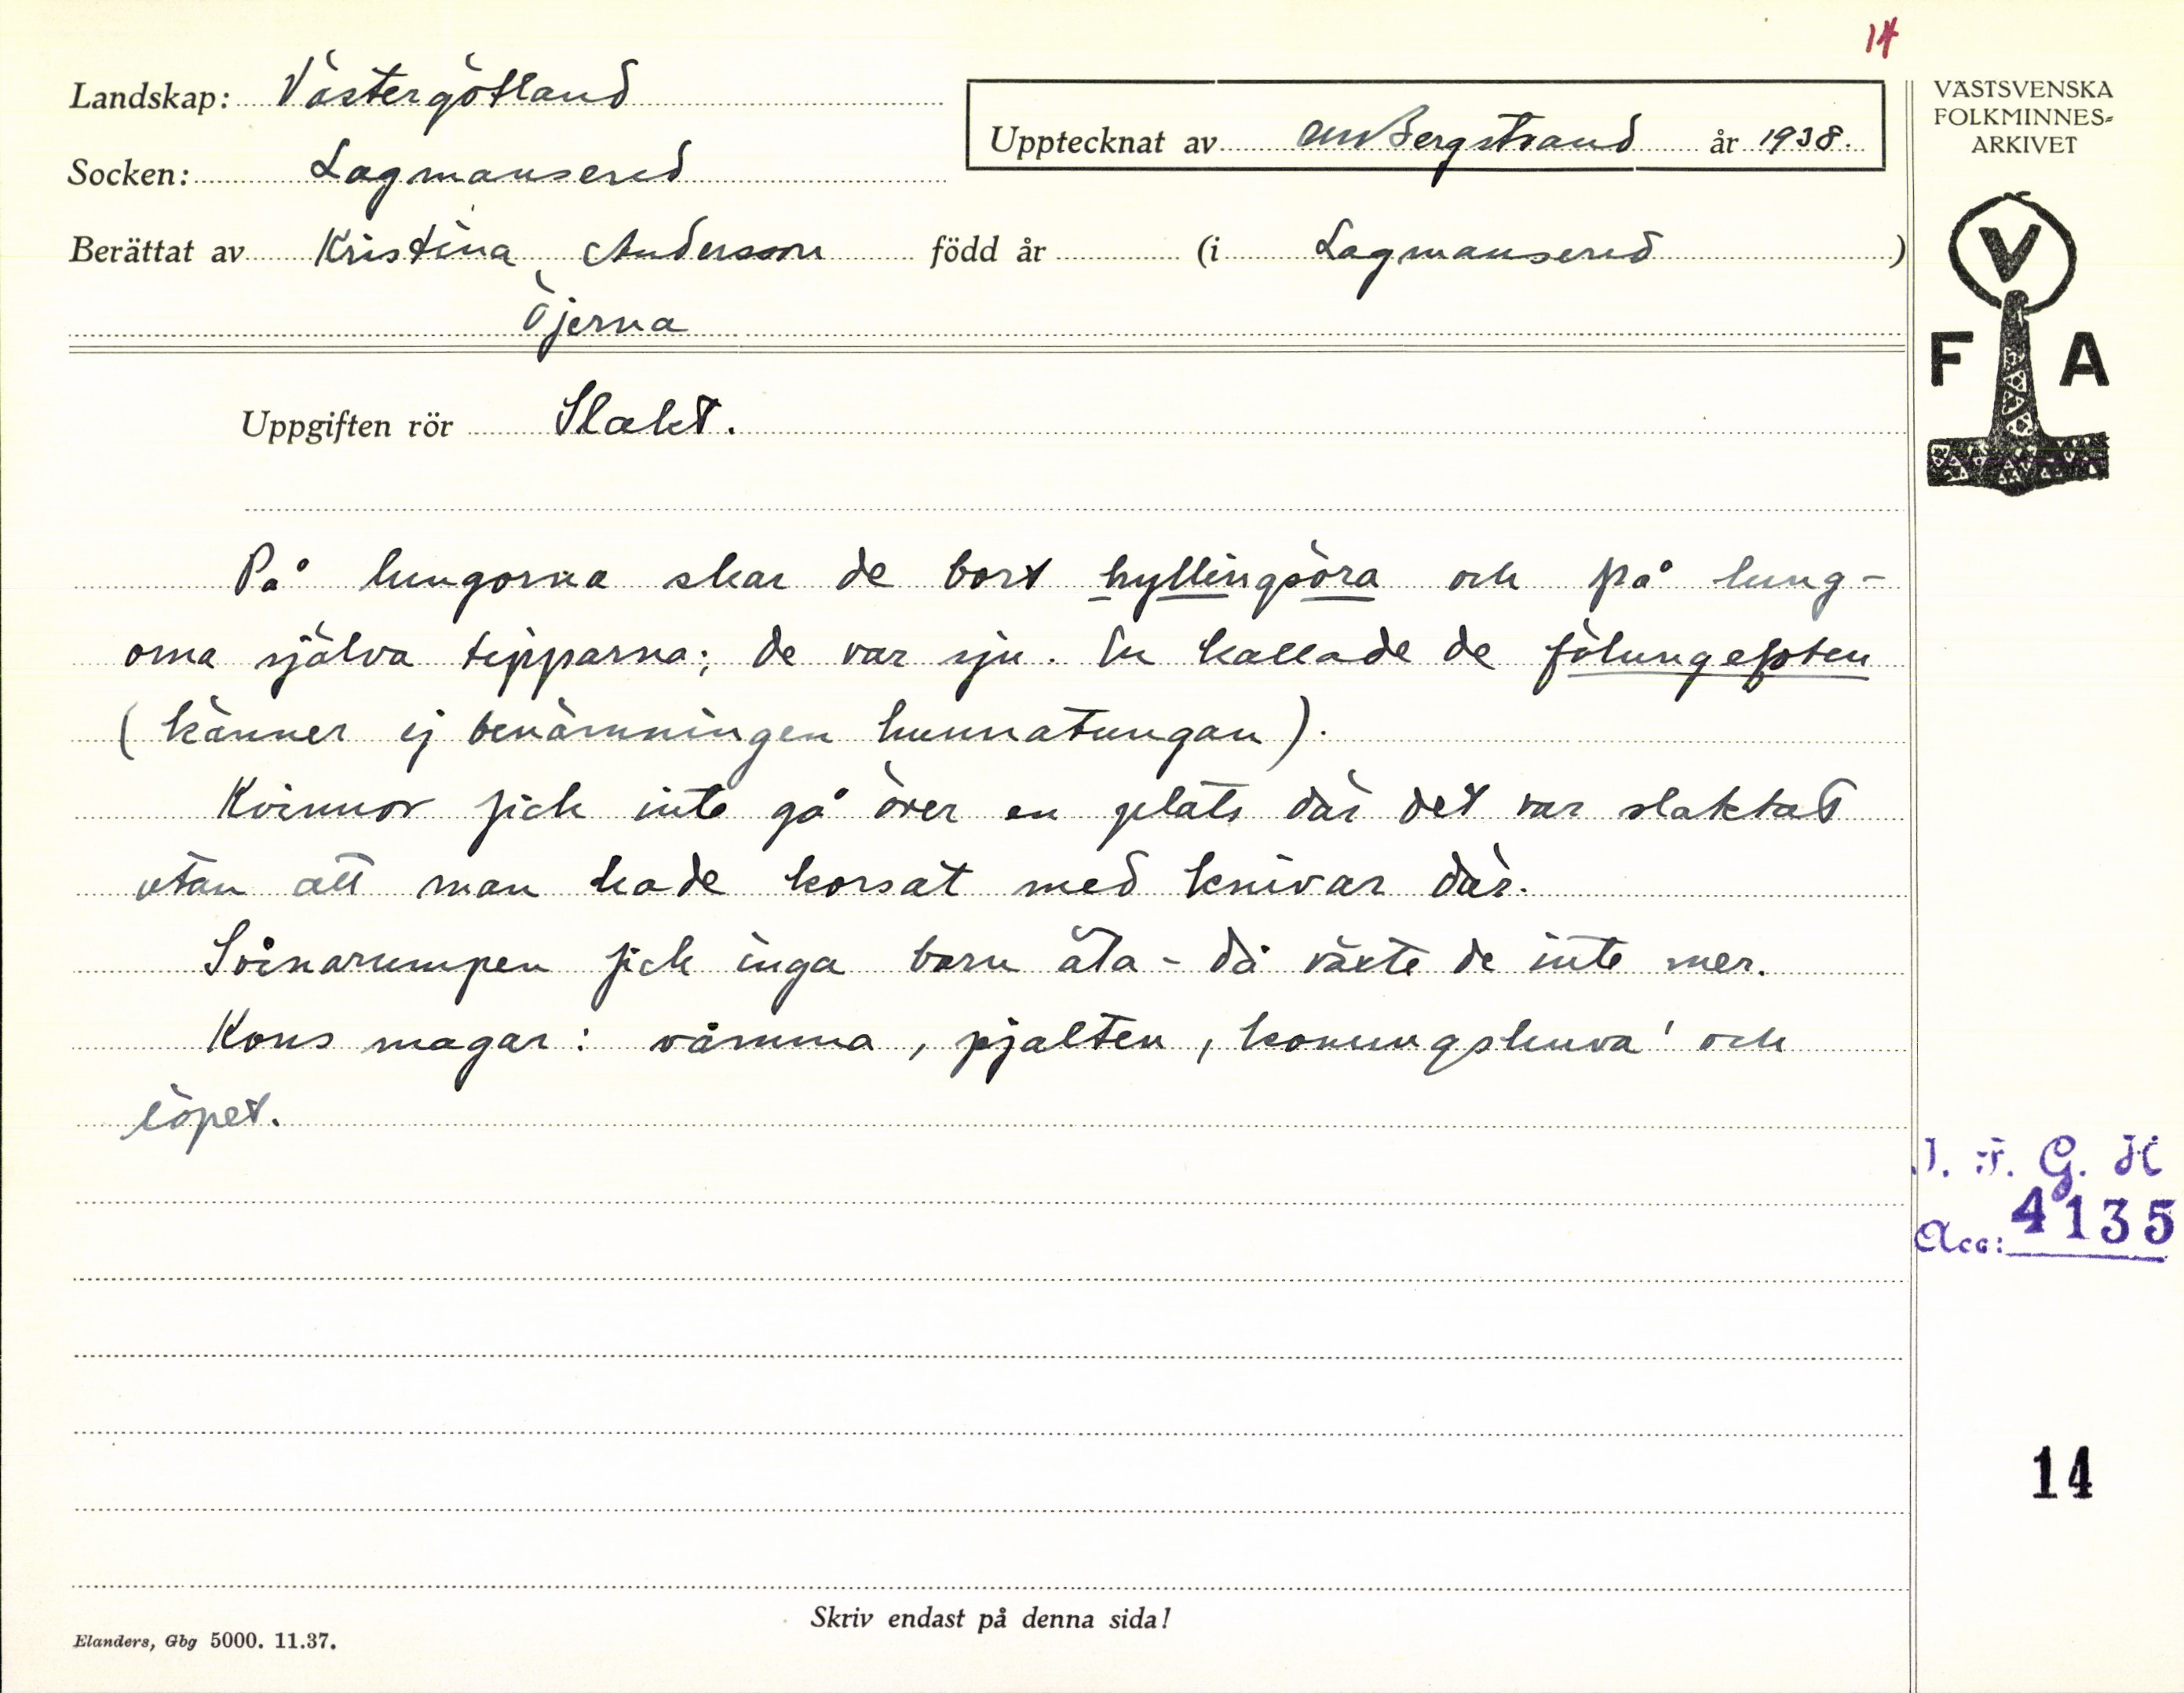 14
Landskap: Västergötland
Upptecknat av CM Bergstrand år 1938.
Socken: Lagmansered
Berättat av Kristina Andersson född år (i Lagmansered)
Öjerna
Uppgiften rör Slakt.
På lungorna skar de bort hyllingsöra och på lung-
orna själva tipparna; de var sju. En kallade de fölungefoten
(känner ej benämningen hunnatungan).
Kvinnor fick inte gå över en plats där det var slaktat
utan att man hade korsat med knivar där.
Svinarumpen fick inga barn äta - då växte de inte mer.
Kons magar: våmma, pjalten, konungshuva' och
löpet.
VÄSTSVENSKA
FOLKMINNES=
ARKIVET
V
F A
I. F. G. H
Acc: 4135
14
Skriv endast på denna sida!
Elanders, Gbg 5000. 11.37.